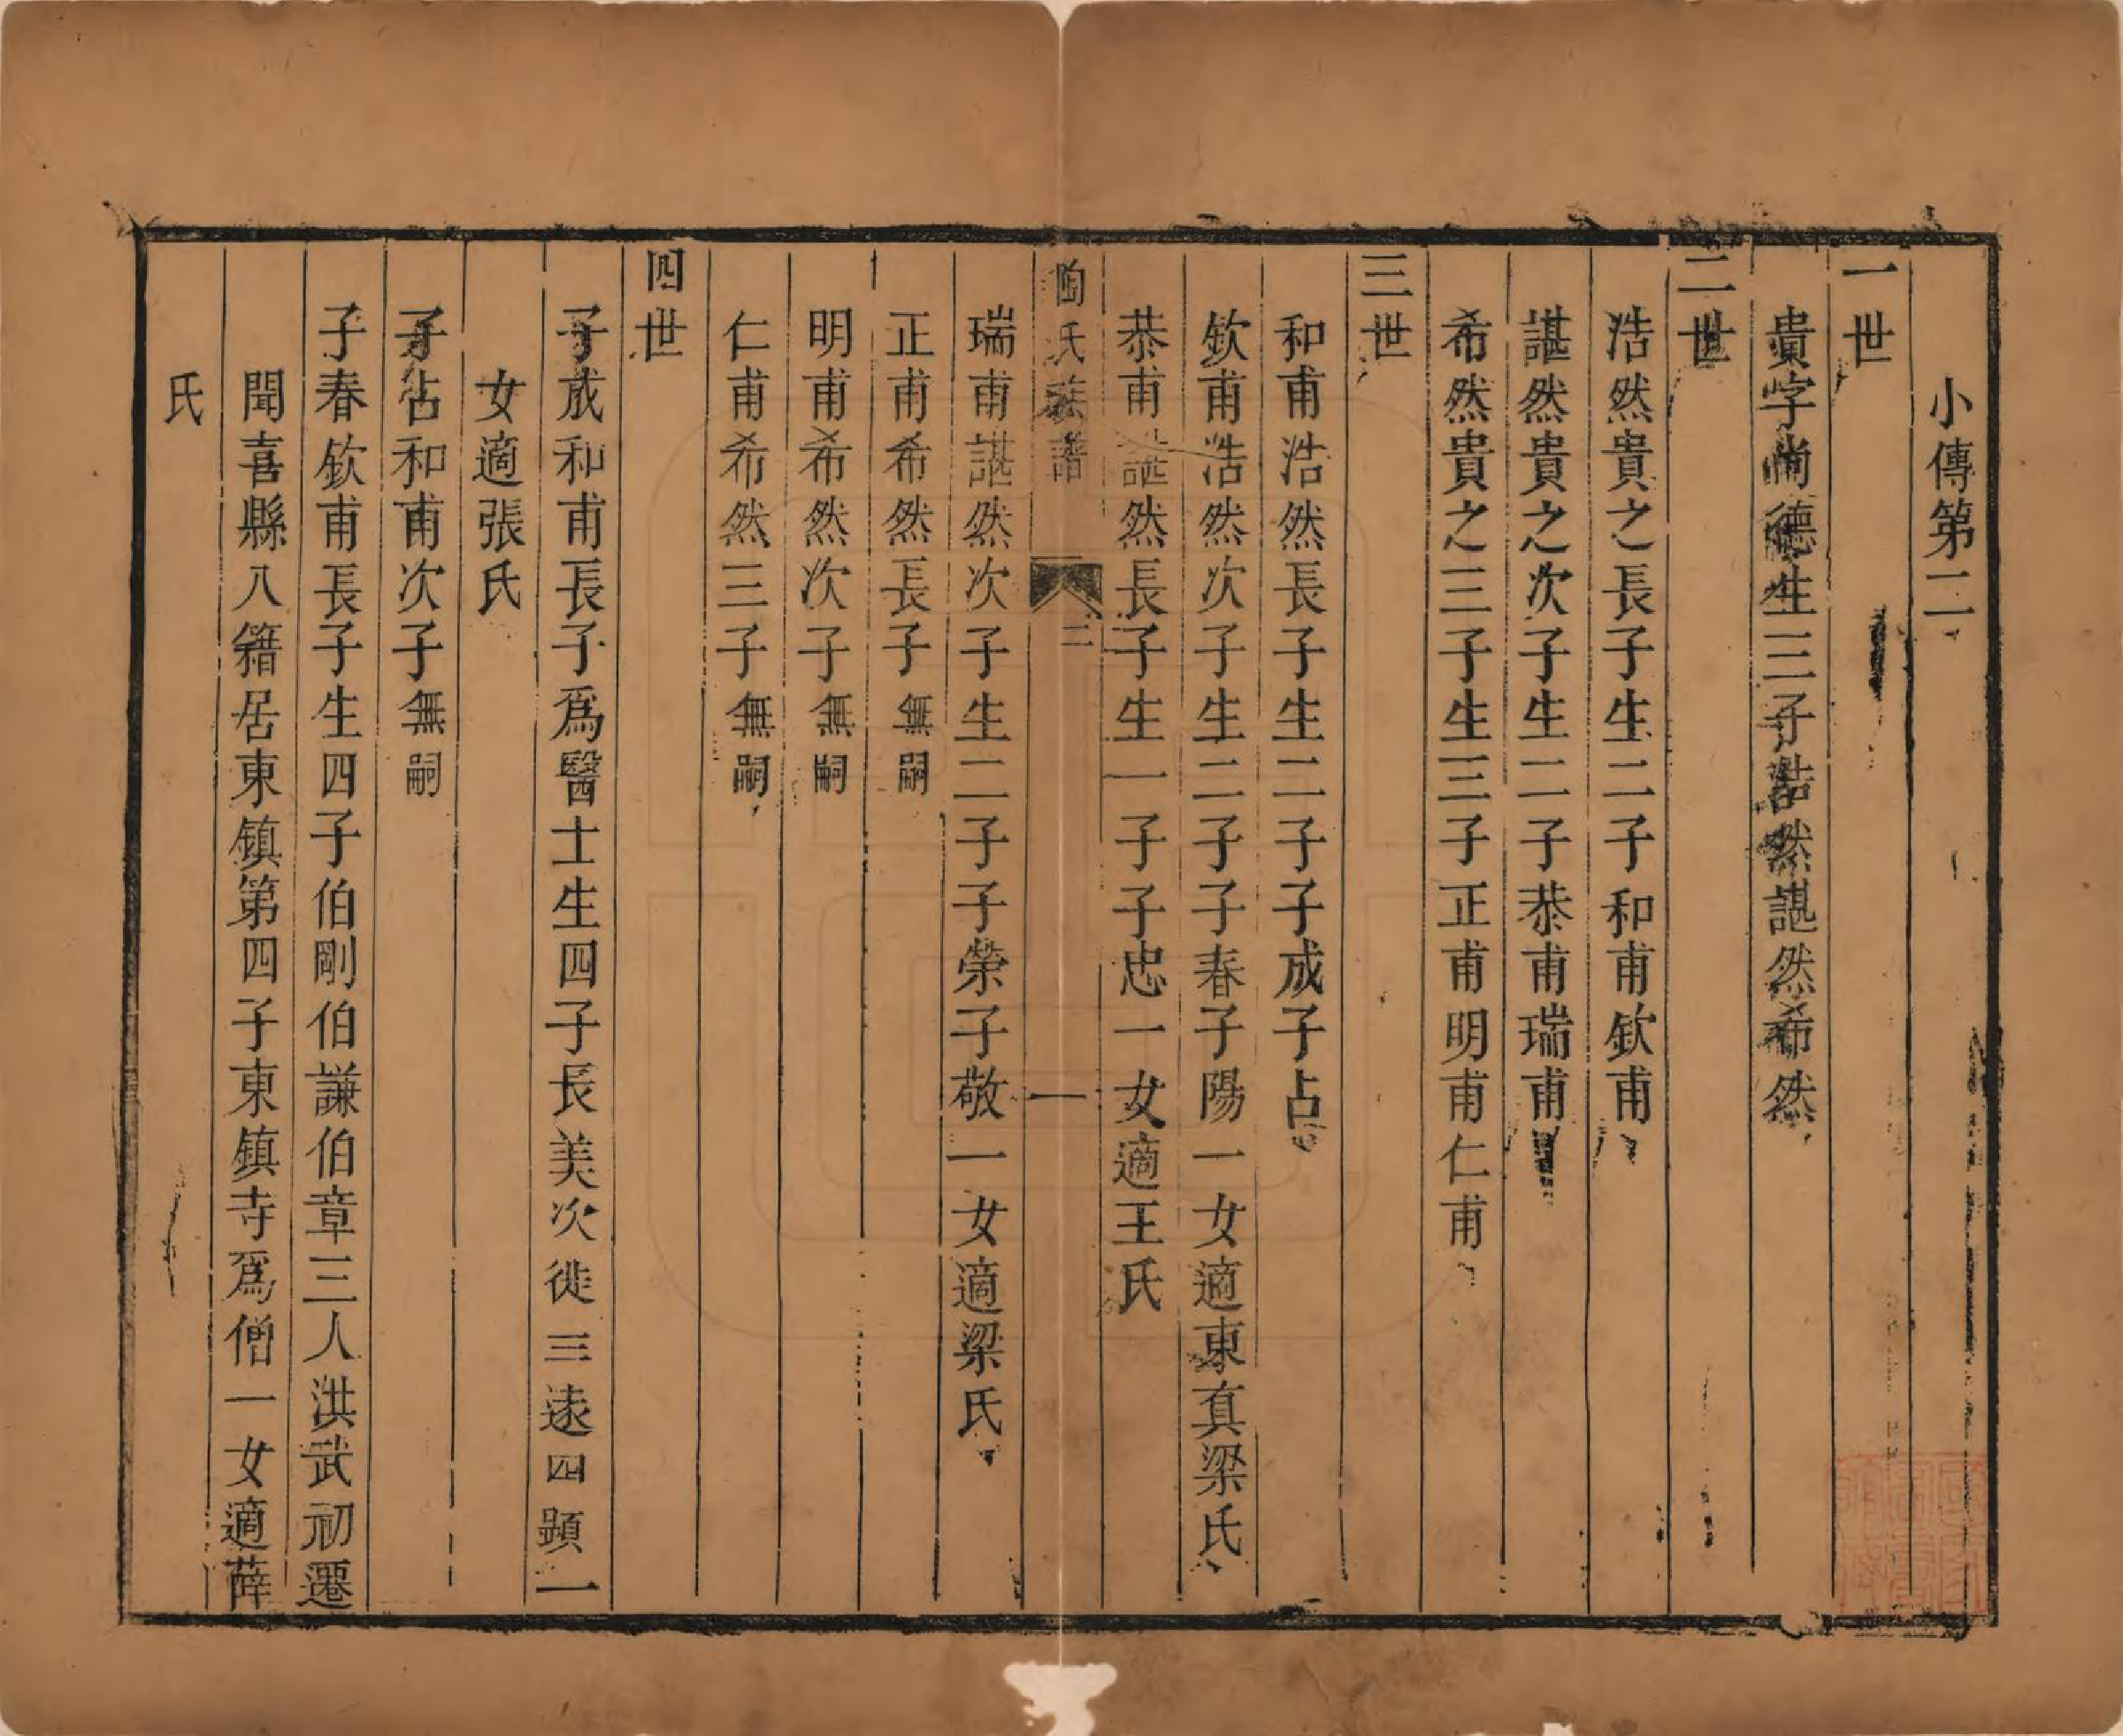 小傳第二
一世
貴字尚德生三子浩然諶然希然
二世
浩然貴之長子生二子和甫欽甫
諶然貴之次子生二子恭甫瑞甫
希然貴之三子生三子正甫明甫仁甫
三世
和甫浩然長子生二子子成子占
欽甫浩然次子生二子子春子陽一女適東真梁氏
恭甫諶然長子生一子子忠一女適王氏
陶氏族譜 二 一
瑞甫諶然次子生二子子榮子敬一女適梁氏
正甫希然長子無嗣
明甫希然次子無嗣
仁甫希然三子無嗣
四世
子成和甫長子爲醫士生四子長美次徙三遠四顕一
女適張氏
子占和甫次子無嗣
子春欽甫長子生四子伯剛伯謙伯章三人洪武初遷
聞喜縣八籍居東鎮第四子東鎮寺爲僧一女適薛
氏